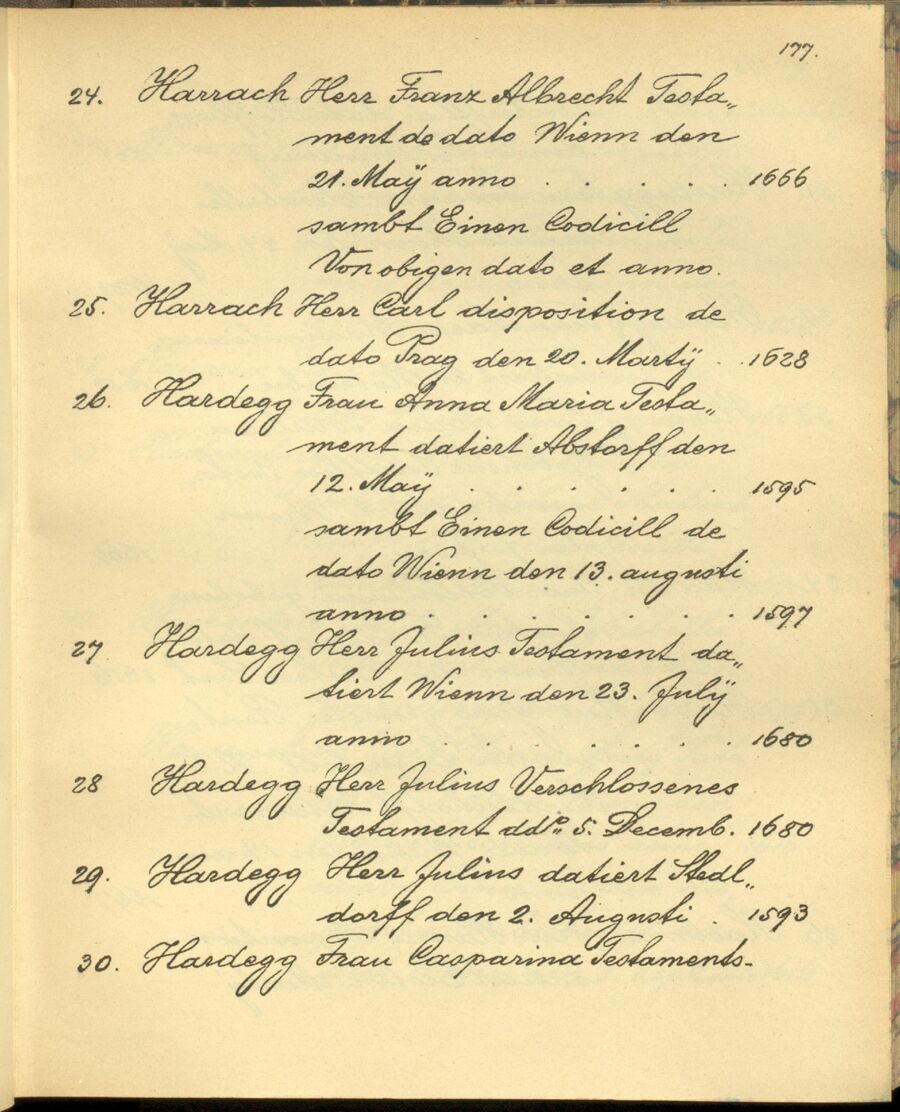 177.
24. Harrach Herr Franz Albrecht Testa„
ment de dato Wienn den
21. Maÿ anno . . . . . 1666
sambt Einen Codicill
Von obigen dato et anno.
25. Harrach Herr Carl disposition de
dato Prag den 20. Martÿ . . 1628
26. Hardegg Frau Anna Maria Testa„
ment datiert Abstorff den
12. Maÿ . . . . . . 1595
sambt Einen Codicill de
dato Wienn den 13. augusti
anno . . . . . . . 1597
27 Hardegg Herr Julius Testament da„
tiert Wienn den 23. Julÿ
anno . . . . . . 1680
28 Hardegg Herr Julius Verschlossenes
Testament dd° 5. Decemb. 1680
29. Hardegg Herr Julius datiert Stedl„
dorff den 2. Augusti . 1593
30. Hardegg Frau Casparina Testaments-